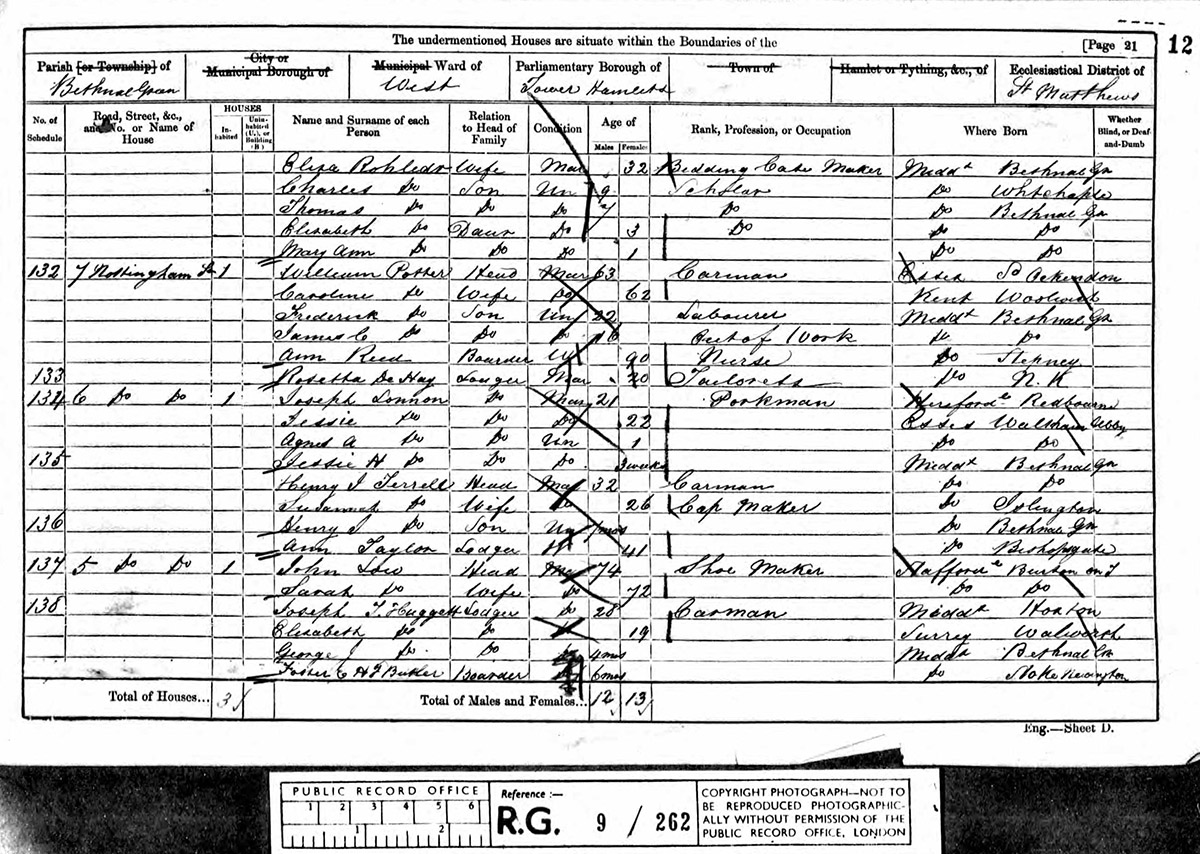 12
The undermentioned Houses are situate within the Boundaries of the [Page 21
Parish [or Township] of Bethnal Green
City or Municipal Borough of
Municipal Ward of West
Parliamentary Borough of Tower Hamlets
Town of
Hamlet or Tything, &c., of
Ecclesiastical District of St Matthews
No. of Schedule
Road, Street, &c., and No. or Name of House
HOUSES
In-habited
Unin-habited (U.), or Building (B)
Name and Surname of each Person
Relation to Head of Family
Condition
Age of
Males
Females
Rank, Profession, or Occupation
Where Born
Whether Blind, or Deaf-and-Dumb
Eliza Wife Mar 32 Bedding Case Maker Middx Bethnal Gn
Charles Do Son Un 9 Scholar Do
Thomas Do Do Do 7 Do Do Bethnal Gn
Elizabeth Do Daur Do 3 Do Do Do
Mary Ann Do Do Do 1 Do Do
132 7 Nottingham 1 William Potter Head Mar 63 Carman Essex Ockendon
Caroline Do Wife Do 62 Kent Woolwich
Frederick Do Son Un 22 Labourer Middx Bethnal Gn
James C Do Do Do 16 Out of Work Do Do
Ann Reed Boarder W 90 Nurse Do Stepney
133 Rosetta De Hay Lodger Mar 20 Tailoress Do N.K
134 6 Do Do 1 Joseph Do Mar 21 Porkman Redbourne
Jessie Do Do Do 22 Essex Waltham Abby
Agnes A Do Do Un 1 Do Do
135 Jessie H Do Do Do 3 weeks Middx Bethnal Gn
Henry J Terrell Head Mar 32 Carman Do Do
Susannah Do Wife Do 26 Cap Maker Do Islington
136 Henry J Do Son Un mos Do Bethnal Gn
Ann Taylor Lodger W 41 Do Bishopsgate
137 5 Do Do 1 John Low Head Mar 74 Shoe Maker Stafford Burton on T
Sarah Do Wife Do 72 Do Do
138 Joseph T Huggett Lodger Do 28 Carman Middx Hoxton
Elizabeth Do Do 19 Surrey Walworth
George J Do Do 4 mos Middx Bethnal Gn
C H Butler Boarder 6 mos Do Stoke Newington
Total of Houses... 3
Total of Males and Females... 12 13
Eng.—Sheet D.
PUBLIC RECORD OFFICE
1 2 3 4 5 6
1 2
Reference :—
R.G. 9 / 262
COPYRIGHT PHOTOGRAPH—NOT TO
BE REPRODUCED PHOTOGRAPHIC-
ALLY WITHOUT PERMISSION OF THE
PUBLIC RECORD OFFICE, LONDON